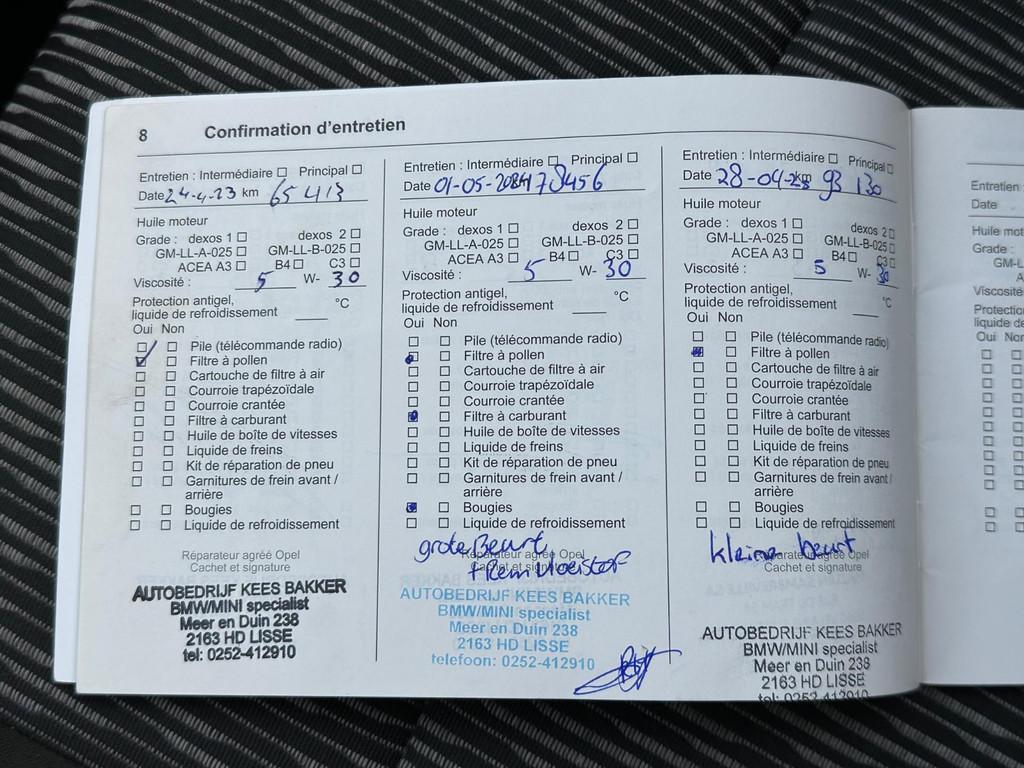 8 Confirmation d'entretien
Entretien : Intermédiaire ☐ Principal ☐
Date 24-4-23 km 65 413
Huile moteur
Grade : dexos 1 ☐ dexos 2 ☐
GM-LL-A-025 ☐ GM-LL-B-025 ☐
ACEA A3 ☐ B4 ☐ C3 ☐
Viscosité : 5 W- 30
Protection antigel,
liquide de refroidissement °C
Oui Non
☐ ☐ Pile (télécommande radio)
☑ ☐ Filtre à pollen
☐ ☐ Cartouche de filtre à air
☐ ☐ Courroie trapézoïdale
☐ ☐ Courroie crantée
☐ ☐ Filtre à carburant
☐ ☐ Huile de boîte de vitesses
☐ ☐ Liquide de freins
☐ ☐ Kit de réparation de pneu
☐ ☐ Garnitures de frein avant /
arrière
☐ ☐ Bougies
☐ ☐ Liquide de refroidissement
Réparateur agréé Opel
Cachet et signature
AUTOBEDRIJF KEES BAKKER
BMW/MINI specialist
Meer en Duin 238
2163 HD LISSE
tel: 0252-412910
Entretien : Intermédiaire ☐ Principal ☐
Date 01-05-2024 78456
Huile moteur
Grade : dexos 1 ☐ dexos 2 ☐
GM-LL-A-025 ☐ GM-LL-B-025 ☐
ACEA A3 ☐ B4 ☐ C3 ☐
Viscosité : 5 W- 30
Protection antigel,
liquide de refroidissement °C
Oui Non
☐ ☐ Pile (télécommande radio)
☑ ☐ Filtre à pollen
☐ ☐ Cartouche de filtre à air
☐ ☐ Courroie trapézoïdale
☐ ☐ Courroie crantée
☑ ☐ Filtre à carburant
☐ ☐ Huile de boîte de vitesses
☐ ☐ Liquide de freins
☐ ☐ Kit de réparation de pneu
☐ ☐ Garnitures de frein avant /
arrière
☑ ☐ Bougies
☐ ☐ Liquide de refroidissement
grote Beurt
Réparateur agréé Opel
+ Remvloeistof
Cachet et signature
AUTOBEDRIJF KEES BAKKER
BMW/MINI specialist
Meer en Duin 238
2163 HD LISSE
telefoon: 0252-412910
Entretien : Intermédiaire ☐ Principal ☐
Date 28-04-25 km 93 130
Huile moteur
Grade : dexos 1 ☐ dexos 2 ☐
GM-LL-A-025 ☐ GM-LL-B-025 ☐
ACEA A3 ☐ B4 ☐ C3 ☐
Viscosité : 5 W- 30
Protection antigel,
liquide de refroidissement °C
Oui Non
☐ ☐ Pile (télécommande radio)
☑ ☐ Filtre à pollen
☐ ☐ Cartouche de filtre à air
☐ ☐ Courroie trapézoïdale
☐ ☐ Courroie crantée
☐ ☐ Filtre à carburant
☐ ☐ Huile de boîte de vitesses
☐ ☐ Liquide de freins
☐ ☐ Kit de réparation de pneu
☐ ☐ Garnitures de frein avant /
arrière
☐ ☐ Bougies
☐ ☐ Liquide de refroidissement
kleine beurt
Réparateur agréé Opel
Cachet et signature
AUTOBEDRIJF KEES BAKKER
BMW/MINI specialist
Meer en Duin 238
2163 HD LISSE
tel: 0252-412910
Entretien
Date
Huile mot
Grade :
GM-L
A
Viscosité
Protectio
liquide de
Oui Non